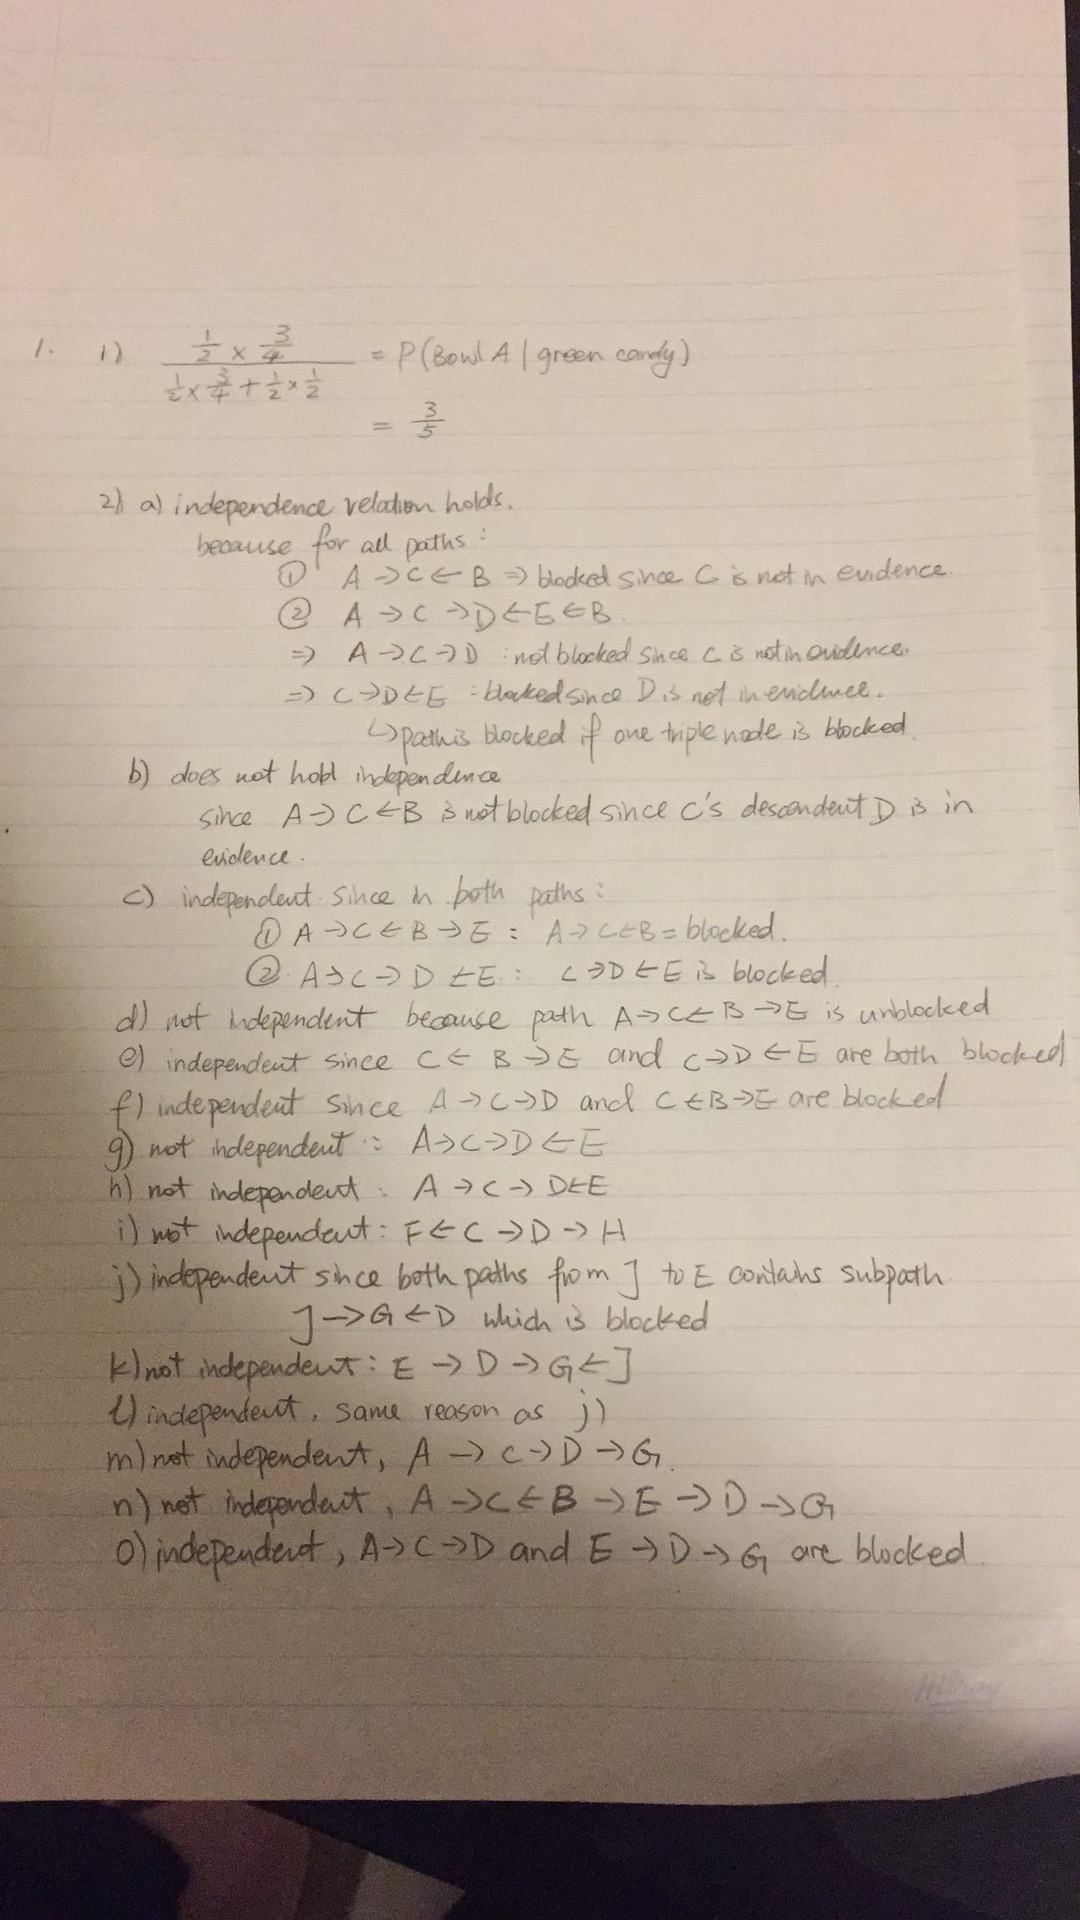 1. 1) (1/2 × 3/4) / (1/2 × 3/4 + 1/2 × 1/2) = P(Bowl A | green candy)
= 3/5
2) a) independence relation holds.
because for all paths :
① A → C ← B ⇒ blocked since C is not in evidence.
② A → C → D ← E ← B.
⇒ A → C → D : not blocked since C is not in evidence.
⇒ C → D ← E : blocked since D is not in evidence.
↳ path is blocked if one triple node is blocked.
b) does not hold independence
since A → C ← B is not blocked since C's descendent D is in
evidence.
c) independent since in both paths :
① A → C ← B → E : A → C ← B = blocked.
② A → C → D ← E : C → D ← E is blocked.
d) not independent because path A → C ← B → E is unblocked
e) independent since C ← B → E and C → D ← E are both blocked
f) independent since A → C → D and C ← B → E are blocked
g) not independent : A → C → D ← E
h) not independent : A → C → D ← E
i) not independent : F ← C → D → H
j) independent since both paths from J to E contains subpath
J → G ← D which is blocked
k) not independent : E → D → G ← J
l) independent, same reason as j)
m) not independent, A → C → D → G.
n) not independent, A → C ← B → E → D → G
o) independent, A → C → D and E → D → G are blocked.
Hilroy